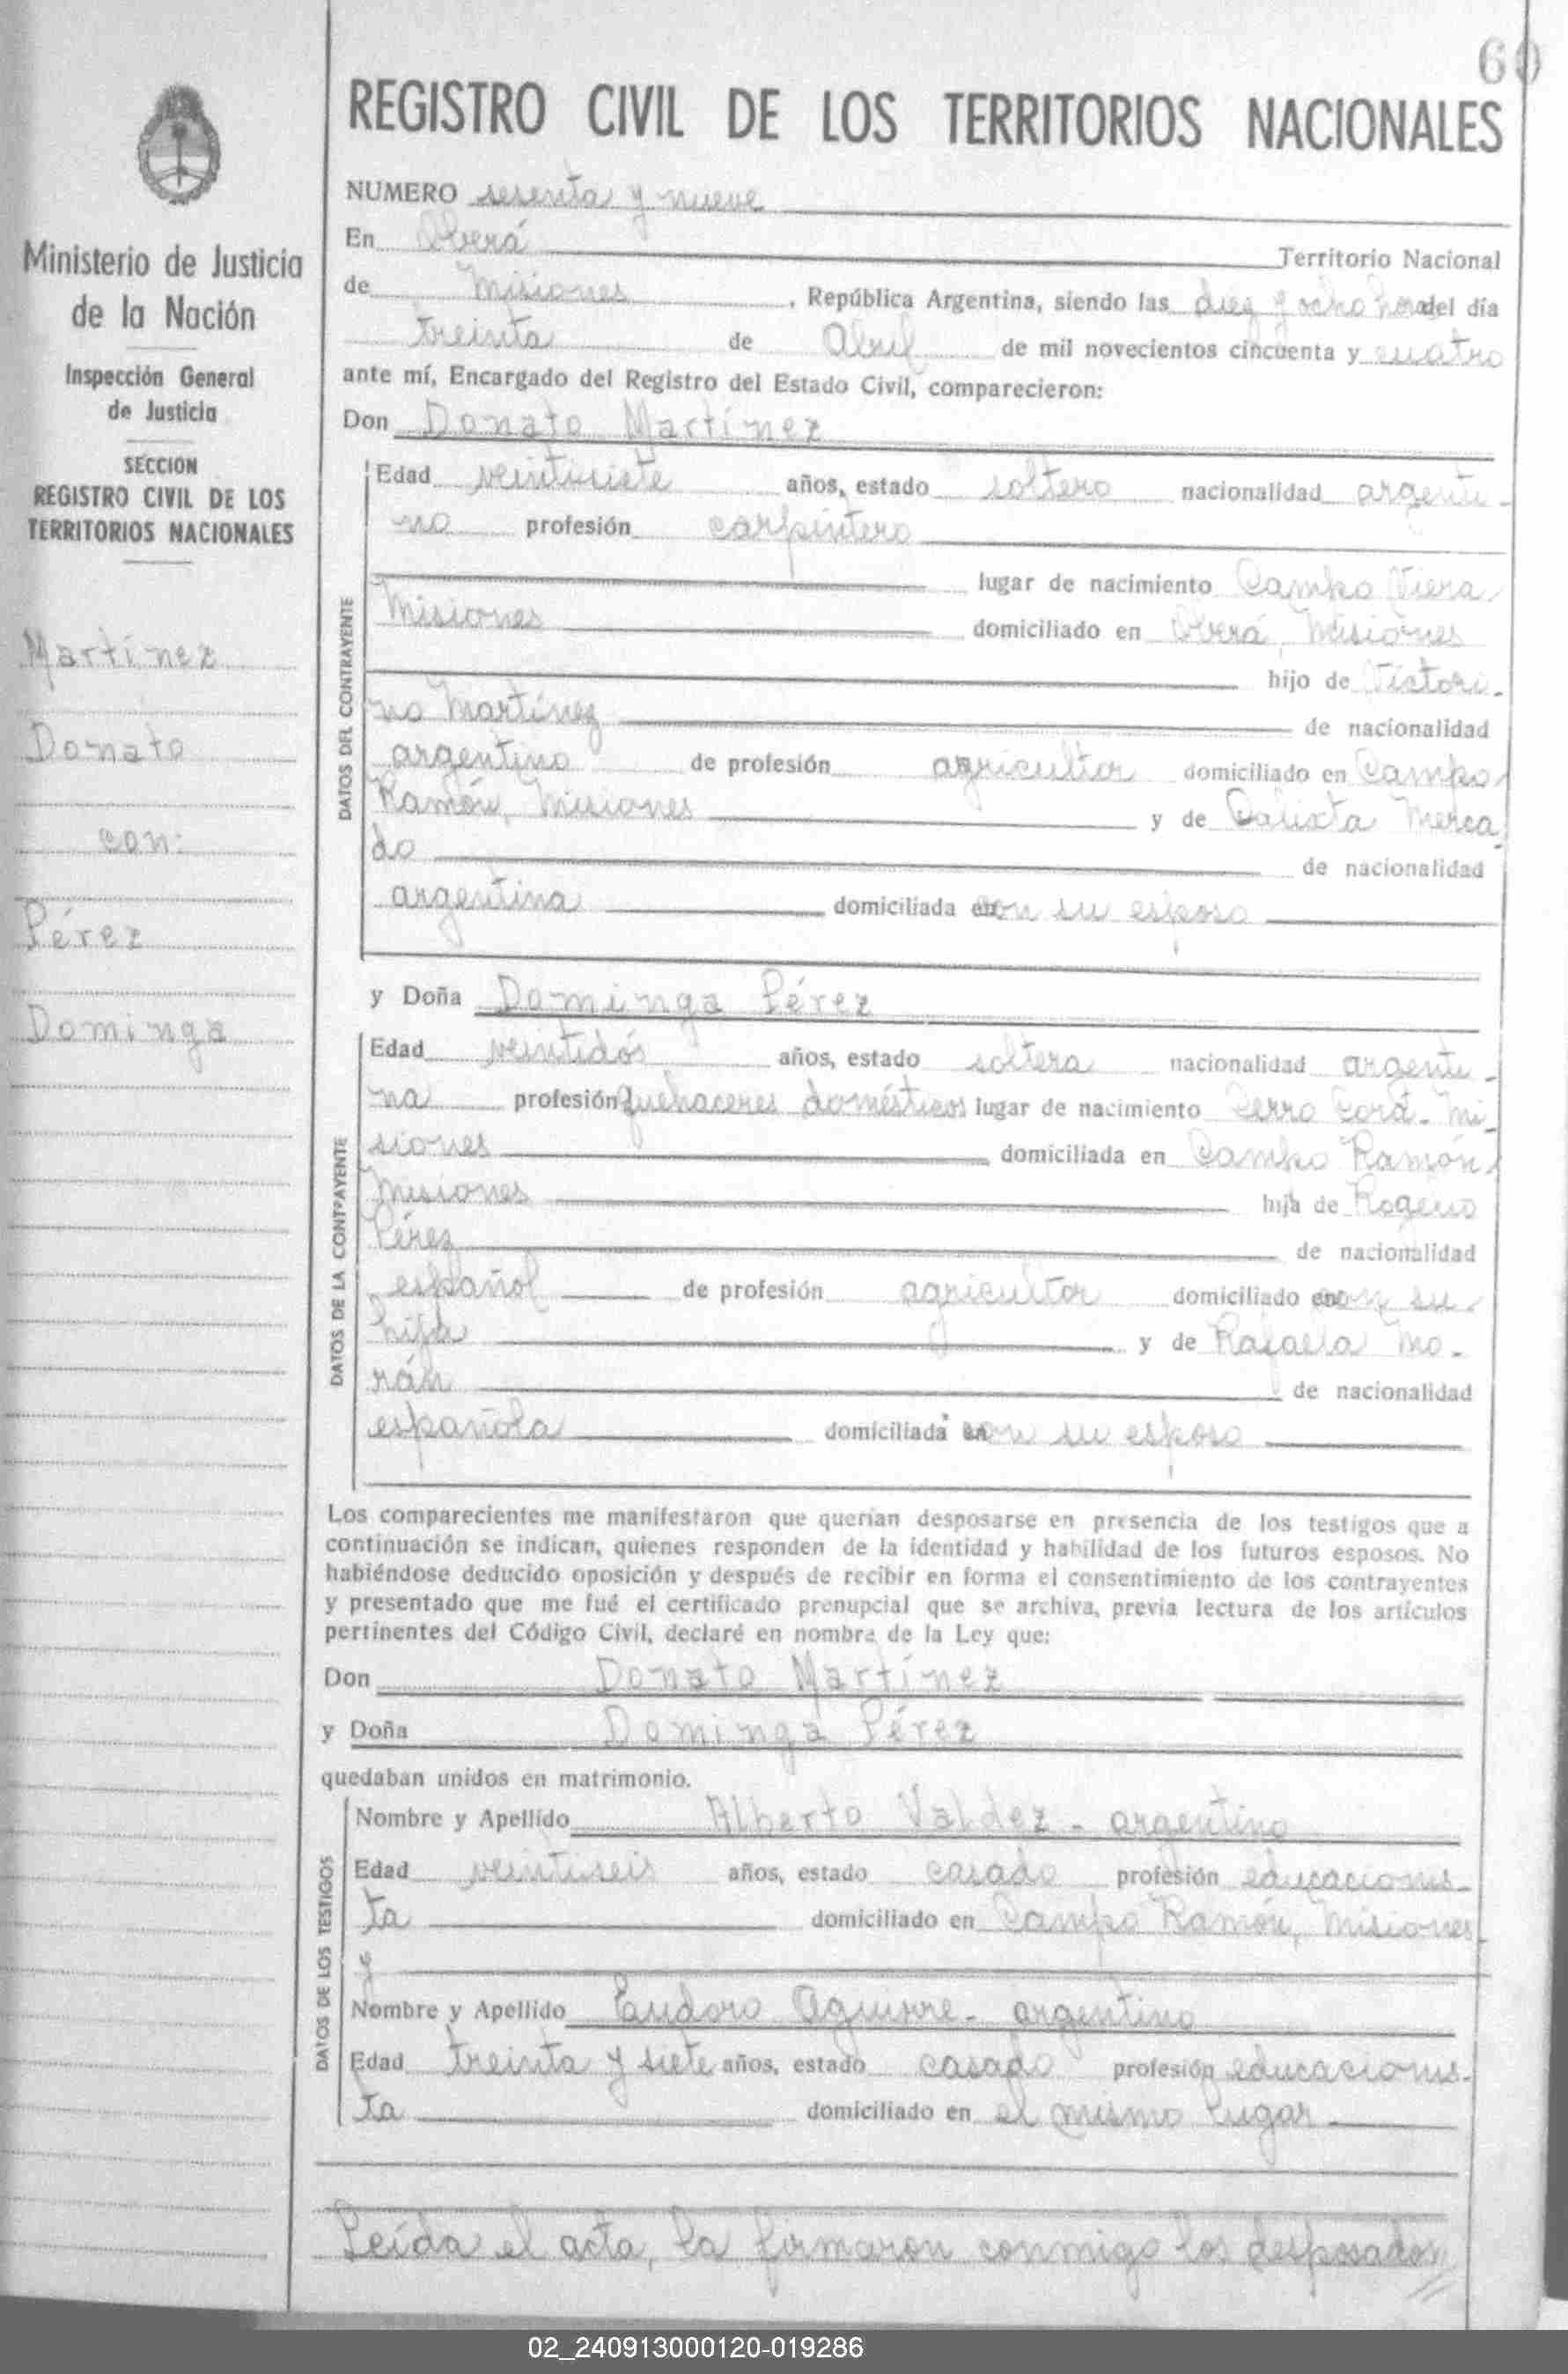 60
REGISTRO CIVIL DE LOS TERRITORIOS NACIONALES
Ministerio de Justicia
de la Nación
Inspección General
de Justicia
SECCION
REGISTRO CIVIL DE LOS
TERRITORIOS NACIONALES
Martínez
Donato
con:
Pérez
Dominga
NUMERO sesenta y nueve
En Oberá Territorio Nacional
de Misiones, República Argentina, siendo las diez y ocho horas del día
treinta de Abril de mil novecientos cincuenta y cuatro
ante mí, Encargado del Registro del Estado Civil, comparecieron:
Don Donato Martínez
DATOS DEL CONTRAYENTE
Edad veintisiete años, estado soltero nacionalidad argenti-
no profesión carpintero
lugar de nacimiento Campo Viera
Misiones domiciliado en Oberá, Misiones
hijo de Victori-
no Martínez de nacionalidad
argentino de profesión agricultor domiciliado en Campo
Ramón, Misiones y de Calixta Merca
do de nacionalidad
argentina domiciliada con su esposo
y Doña Dominga Pérez
DATOS DE LA CONTRAYENTE
Edad veintidós años, estado soltera nacionalidad argenti-
na profesión Quehaceres domésticos lugar de nacimiento Cerro Corá - Mi-
siones domiciliada en Campo Ramón,
Misiones hija de Rogelio
Pérez de nacionalidad
español de profesión agricultor domiciliado con su
hija y de Rafaela Mo-
rán de nacionalidad
española domiciliada con su esposo
Los comparecientes me manifestaron que querían desposarse en presencia de los testigos que a
continuación se indican, quienes responden de la identidad y habilidad de los futuros esposos. No
habiéndose deducido oposición y después de recibir en forma el consentimiento de los contrayentes
y presentado que me fué el certificado prenupcial que se archiva, previa lectura de los artículos
pertinentes del Código Civil, declaré en nombre de la Ley que:
Don Donato Martínez
y Doña Dominga Pérez
quedaban unidos en matrimonio.
DATOS DE LOS TESTIGOS
Nombre y Apellido Alberto Valdez - argentino
Edad veintiseis años, estado casado profesión educacionis-
ta domiciliado en Campo Ramón, Misiones
y
Nombre y Apellido Eudoro Aguirre - argentino
Edad treinta y siete años, estado casado profesión educacionis-
ta domiciliado en el mismo lugar
Leída el acta, la firmaron conmigo los desposados,
02_240913000120-019286